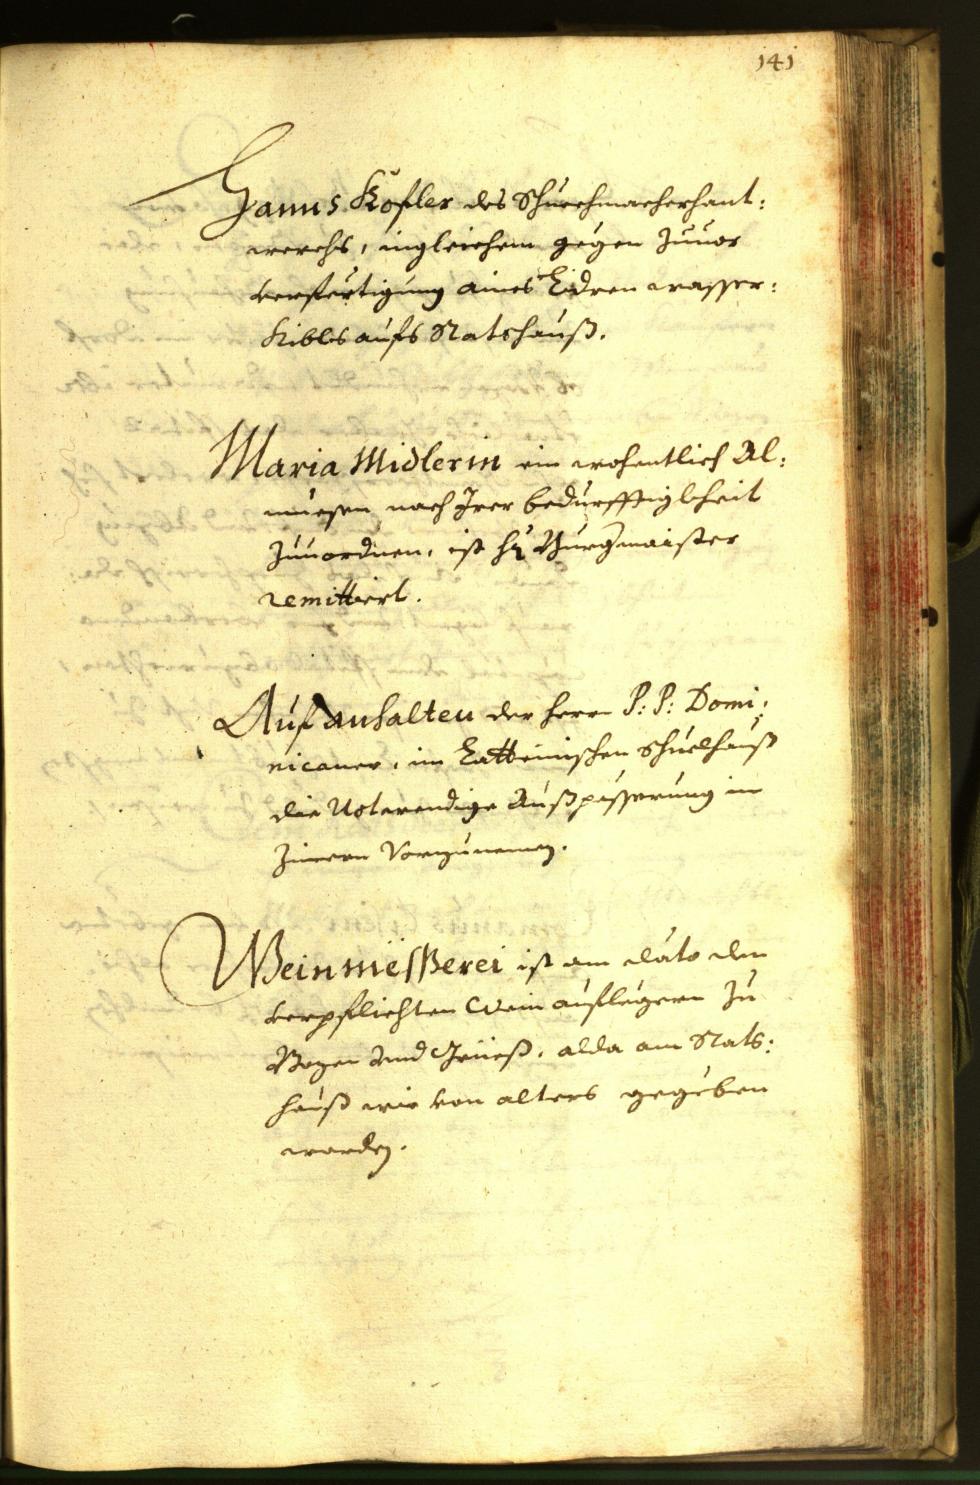 141
Hanns Kofler des Schuechmacherhant:
werchs, ingleichem gegen Zuuor
verfertigung aines Lidren wasser:
Kibls aufs Ratshauß.
Maria Midlerin ein wohentlich Al:
muesen nach Irer bedürfftigkheit
Zuuordnen, ist hr Burgmaister
remittiert.
Auf anhalten der herrn P: P: Domi:
nicaner, im Latteinischen Schuelhauß
die Notwendige Außpesserung im
Zimern Vorzunemen.
Weinmësßerei ist am dato den
verpflichten Wein auflegern Zu
Bozen und Grieß, alda am Rats:
hauß wie von alters gegeben
worden.